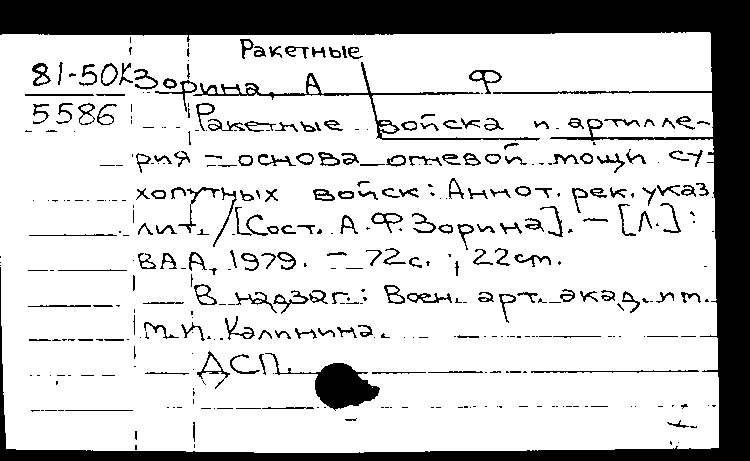 Ракетные
81-50К Зорина, А Ф
5586 Ракетные войска и артилле-
рия – основа огневой мощи су-
хопутных войск: Аннот. рек. указ.
лит. / [Сост. А.Ф. Зорина]. – [Л.]:
ВАА, 1979. – 72с. ; 22см.
В надзаг.: Воен. арт. акад. им.
М.И. Калинина.
ДСП.